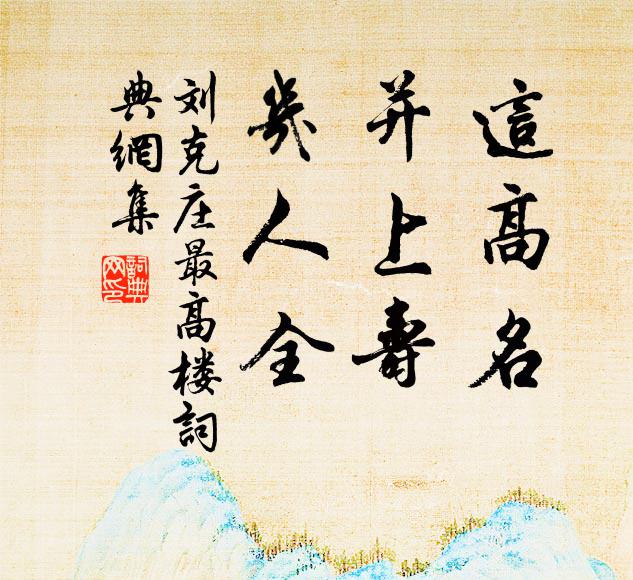 這高名
并上壽
幾人全
刘克庄最高楼詞
典網集
詞典
网印